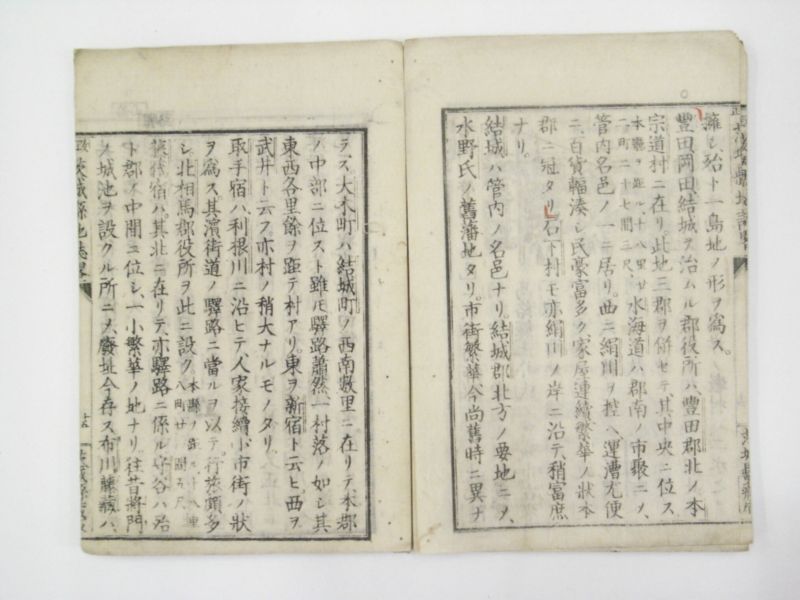 擁シ、殆ト一島地ノ形ヲ爲ス。
豐田、岡田、結城ヲ治ムル郡役所ハ、豐田郡北ノ本
宗道村ニ在リ、此地三郡ヲ併セテ其中央ニ位ス
本縣ヲ距ル十八里廿
一町二十七間三尺、水海道ハ、郡南ノ市聚ニメ、
管内名邑ノ一ニ居リ。西ニ絹川ヲ控ヘ、運漕尤便
ニ、百貨輻湊シ、民豪富多ク、家屋連續、繁華ノ狀、本
郡ニ冠タリ、石下村モ亦絹川ノ岸ニ沿テ、稍富庶
ナリ。
結城ハ管内ノ名邑ナリ。結城郡北方ノ要地ニメ、
水野氏ノ舊藩地タリ。市街繁華、今尚舊時ニ異ナ
ラス、大木町ハ結城町ノ西南數里ニ在リテ、本郡
ノ中部ニ位スト雖モ、驛路蕭然、一村落ノ如シ、其
東西各里餘ヲ距テ村アリ。東ヲ新宿ト云ヒ、西ヲ
武井ト云フ、亦村ノ稍大ナルモノタリ。
取手宿ハ、利根川ニ沿ヒテ、人家接續、小市街ノ狀
ヲ爲ス、其濱街道ノ驛路ニ當ルヲ以テ、行旅頗多
シ、北相馬郡役所ヲ此ニ設ク
宿ハ、其北ニ在リテ、亦驛路ニ係ル、守谷ハ、沿
ト郡ノ中間ニ位シ、一小繁華ノ地ナリ。往昔將門
ノ城池ヲ設クル所ニメ、廢址今存ス、布川、藤藏ハ、